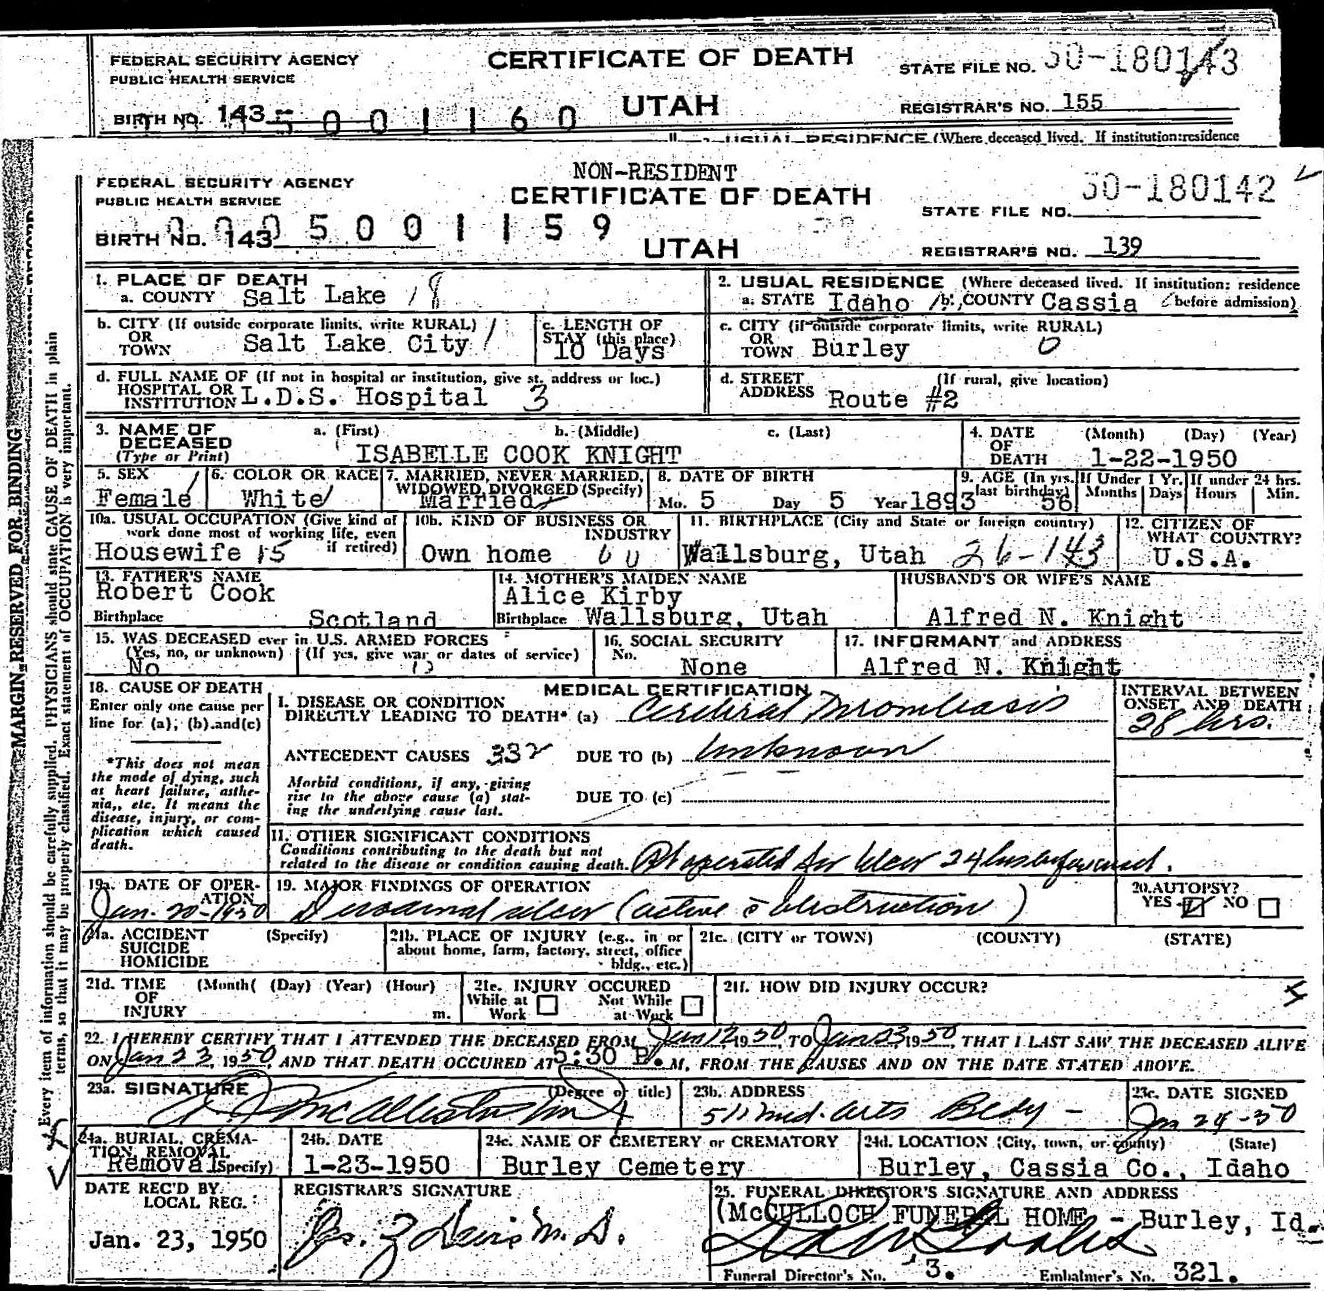 FEDERAL SECURITY AGENCY
PUBLIC HEALTH SERVICE
CERTIFICATE OF DEATH
UTAH
STATE FILE NO. 50-180143
REGISTRAR'S NO. 155
BIRTH NO. 143 5001160
2. USUAL RESIDENCE (Where deceased lived. If institution: residence
NON-RESIDENT
FEDERAL SECURITY AGENCY
PUBLIC HEALTH SERVICE
CERTIFICATE OF DEATH
STATE FILE NO. 50-180142
BIRTH NO. 143 5001159
UTAH
REGISTRAR'S NO. 139
MARGIN RESERVED FOR BINDING
Every item of information should be carefully supplied. PHYSICIANS should state CAUSE OF DEATH in plain
terms, so that it may be properly classified. Exact statement of OCCUPATION is very important.
1. PLACE OF DEATH
a. COUNTY Salt Lake 18
2. USUAL RESIDENCE (Where deceased lived. If institution: residence
a. STATE Idaho b. COUNTY Cassia before admission)
b. CITY (If outside corporate limits, write RURAL)
OR
TOWN Salt Lake City 1
c. LENGTH OF
STAY (this place)
10 Days
c. CITY (if outside corporate limits, write RURAL)
OR
TOWN Burley 0
d. FULL NAME OF (If not in hospital or institution, give st. address or loc.)
HOSPITAL OR
INSTITUTION L.D.S. Hospital 3
d. STREET (If rural, give location)
ADDRESS Route #2
3. NAME OF
DECEASED
(Type or Print)
a. (First) b. (Middle) c. (Last)
ISABELLE COOK KNIGHT
4. DATE (Month) (Day) (Year)
OF
DEATH 1-22-1950
5. SEX
Female
6. COLOR OR RACE
White
7. MARRIED, NEVER MARRIED,
WIDOWED, DIVORCED (Specify)
Married
8. DATE OF BIRTH
Mo. 5 Day 5 Year 1893
9. AGE (In yrs.
last birthday) 56
If Under 1 Yr.
Months Days
If under 24 hrs.
Hours Min.
10a. USUAL OCCUPATION (Give kind of
work done most of working life, even
if retired)
Housewife 15
10b. KIND OF BUSINESS OR
INDUSTRY
Own home
11. BIRTHPLACE (City and State or foreign country)
Wallsburg, Utah 26-143
12. CITIZEN OF
WHAT COUNTRY?
U.S.A.
13. FATHER'S NAME
Robert Cook
Birthplace Scotland
14. MOTHER'S MAIDEN NAME
Alice Kirby
Birthplace Wallsburg, Utah
HUSBAND'S OR WIFE'S NAME
Alfred N. Knight
15. WAS DECEASED ever in U.S. ARMED FORCES
(Yes, no, or unknown) (If yes, give war or dates of service)
No 0
16. SOCIAL SECURITY
No.
None
17. INFORMANT and ADDRESS
Alfred N. Knight
18. CAUSE OF DEATH
Enter only one cause per
line for (a), (b).and(c)
*This does not mean
the mode of dying, such
as heart failure, asthe-
nia,, etc. It means the
disease, injury, or com-
plication which caused
death.
MEDICAL CERTIFICATION
I. DISEASE OR CONDITION
DIRECTLY LEADING TO DEATH* (a) Cerebral Thrombosis
INTERVAL BETWEEN
ONSET AND DEATH
28 hrs.
ANTECEDENT CAUSES 332 DUE TO (b) Unknown
Morbid conditions, if any, giving
rise to the above cause (a) stat-
ing the underlying cause last.
DUE TO (c)
11. OTHER SIGNIFICANT CONDITIONS
Conditions contributing to the death but not
related to the disease or condition causing death. Pt operated for ulcer 24 hrs
19a. DATE OF OPER-
ATION
Jan. 20-1950
19. MAJOR FINDINGS OF OPERATION
Duodenal ulcer (active c obstruction)
20. AUTOPSY?
YES NO
21a. ACCIDENT (Specify)
SUICIDE
HOMICIDE
21b. PLACE OF INJURY (e.g., in or
about home, farm, factory, street, office
bldg., etc.)
21c. (CITY or TOWN) (COUNTY) (STATE)
21d. TIME (Month( (Day) (Year) (Hour)
OF
INJURY m.
21e. INJURY OCCURED
While at Work Not While at Work
21f. HOW DID INJURY OCCUR?
22. I HEREBY CERTIFY THAT I ATTENDED THE DECEASED FROM Jan 12 1950 TO Jan 23 1950 THAT I LAST SAW THE DECEASED ALIVE
ON Jan 23, 1950, AND THAT DEATH OCCURED AT 5:30 P.M, FROM THE CAUSES AND ON THE DATE STATED ABOVE.
23a. SIGNATURE (Degree or title)
McAllister
23b. ADDRESS
511 Med. Arts Bldg -
23c. DATE SIGNED
Jan 24-50
24a. BURIAL, CREMA-
TION, REMOVAL
Removal (Specify)
24b. DATE
1-23-1950
24c. NAME OF CEMETERY or CREMATORY
Burley Cemetery
24d. LOCATION (City, town, or county) (State)
Burley, Cassia Co., Idaho
DATE REC'D BY
LOCAL REG.
Jan. 23, 1950
REGISTRAR'S SIGNATURE
25. FUNERAL DIRECTOR'S SIGNATURE AND ADDRESS
(McCULLOCH FUNERAL HOME - Burley, Id.
Funeral Director's No. 3. Embalmer's No. 321.